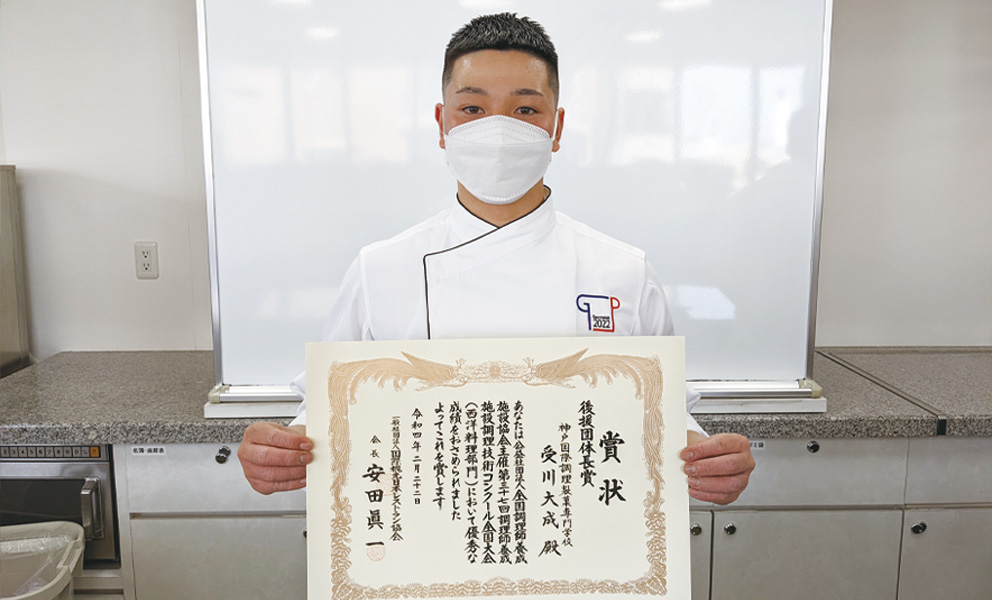 賞状
後援団体長賞
神戸国際調理製菓専門学校
受川大成 殿
あなたは公益社団法人全国調理師養成
施設協会主催第三十七回調理師養成
施設調理技術コンクール全国大会
（西洋料理部門）において優秀な
成績をおさめられました
よってこれを賞します
令和四年二月二十二日
一般社団法人国際観光日本レストラン協会
会長 安田眞一
GTP
2022